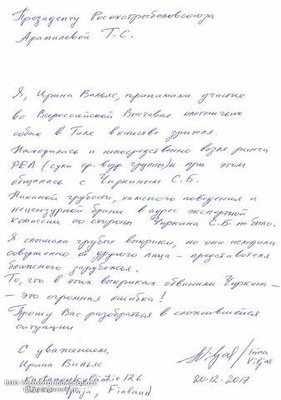 Президенту Росохотрыболовсоюза
Арамилевой Т.С.
Я, Ирина Вильяс, принимала участие
во Всероссийской Выставке охотничьих
собак в Туле в качестве зрителя.
Находилась и непосредственно возле ринга
РЕЛ (суки ср. возр. группы) и при этом
общалась с Чиркиным С.Б.
Никакой грубости, хамского поведения и
нецензурной брани в адрес экспертной
комиссии со стороны Чиркина С.Б. не было.
Я слышала грубые выкрики, но они исходили
совершенно от другого лица - представителя
ближнего зарубежья.
То, что в этих выкриках обвинили Чиркина -
- это огромная ошибка!
Прошу Вас разобраться в сложившейся
ситуации
С уважением,
Ирина Вильяс
12 6
Finland
Irina
Viljas
20.12.2017